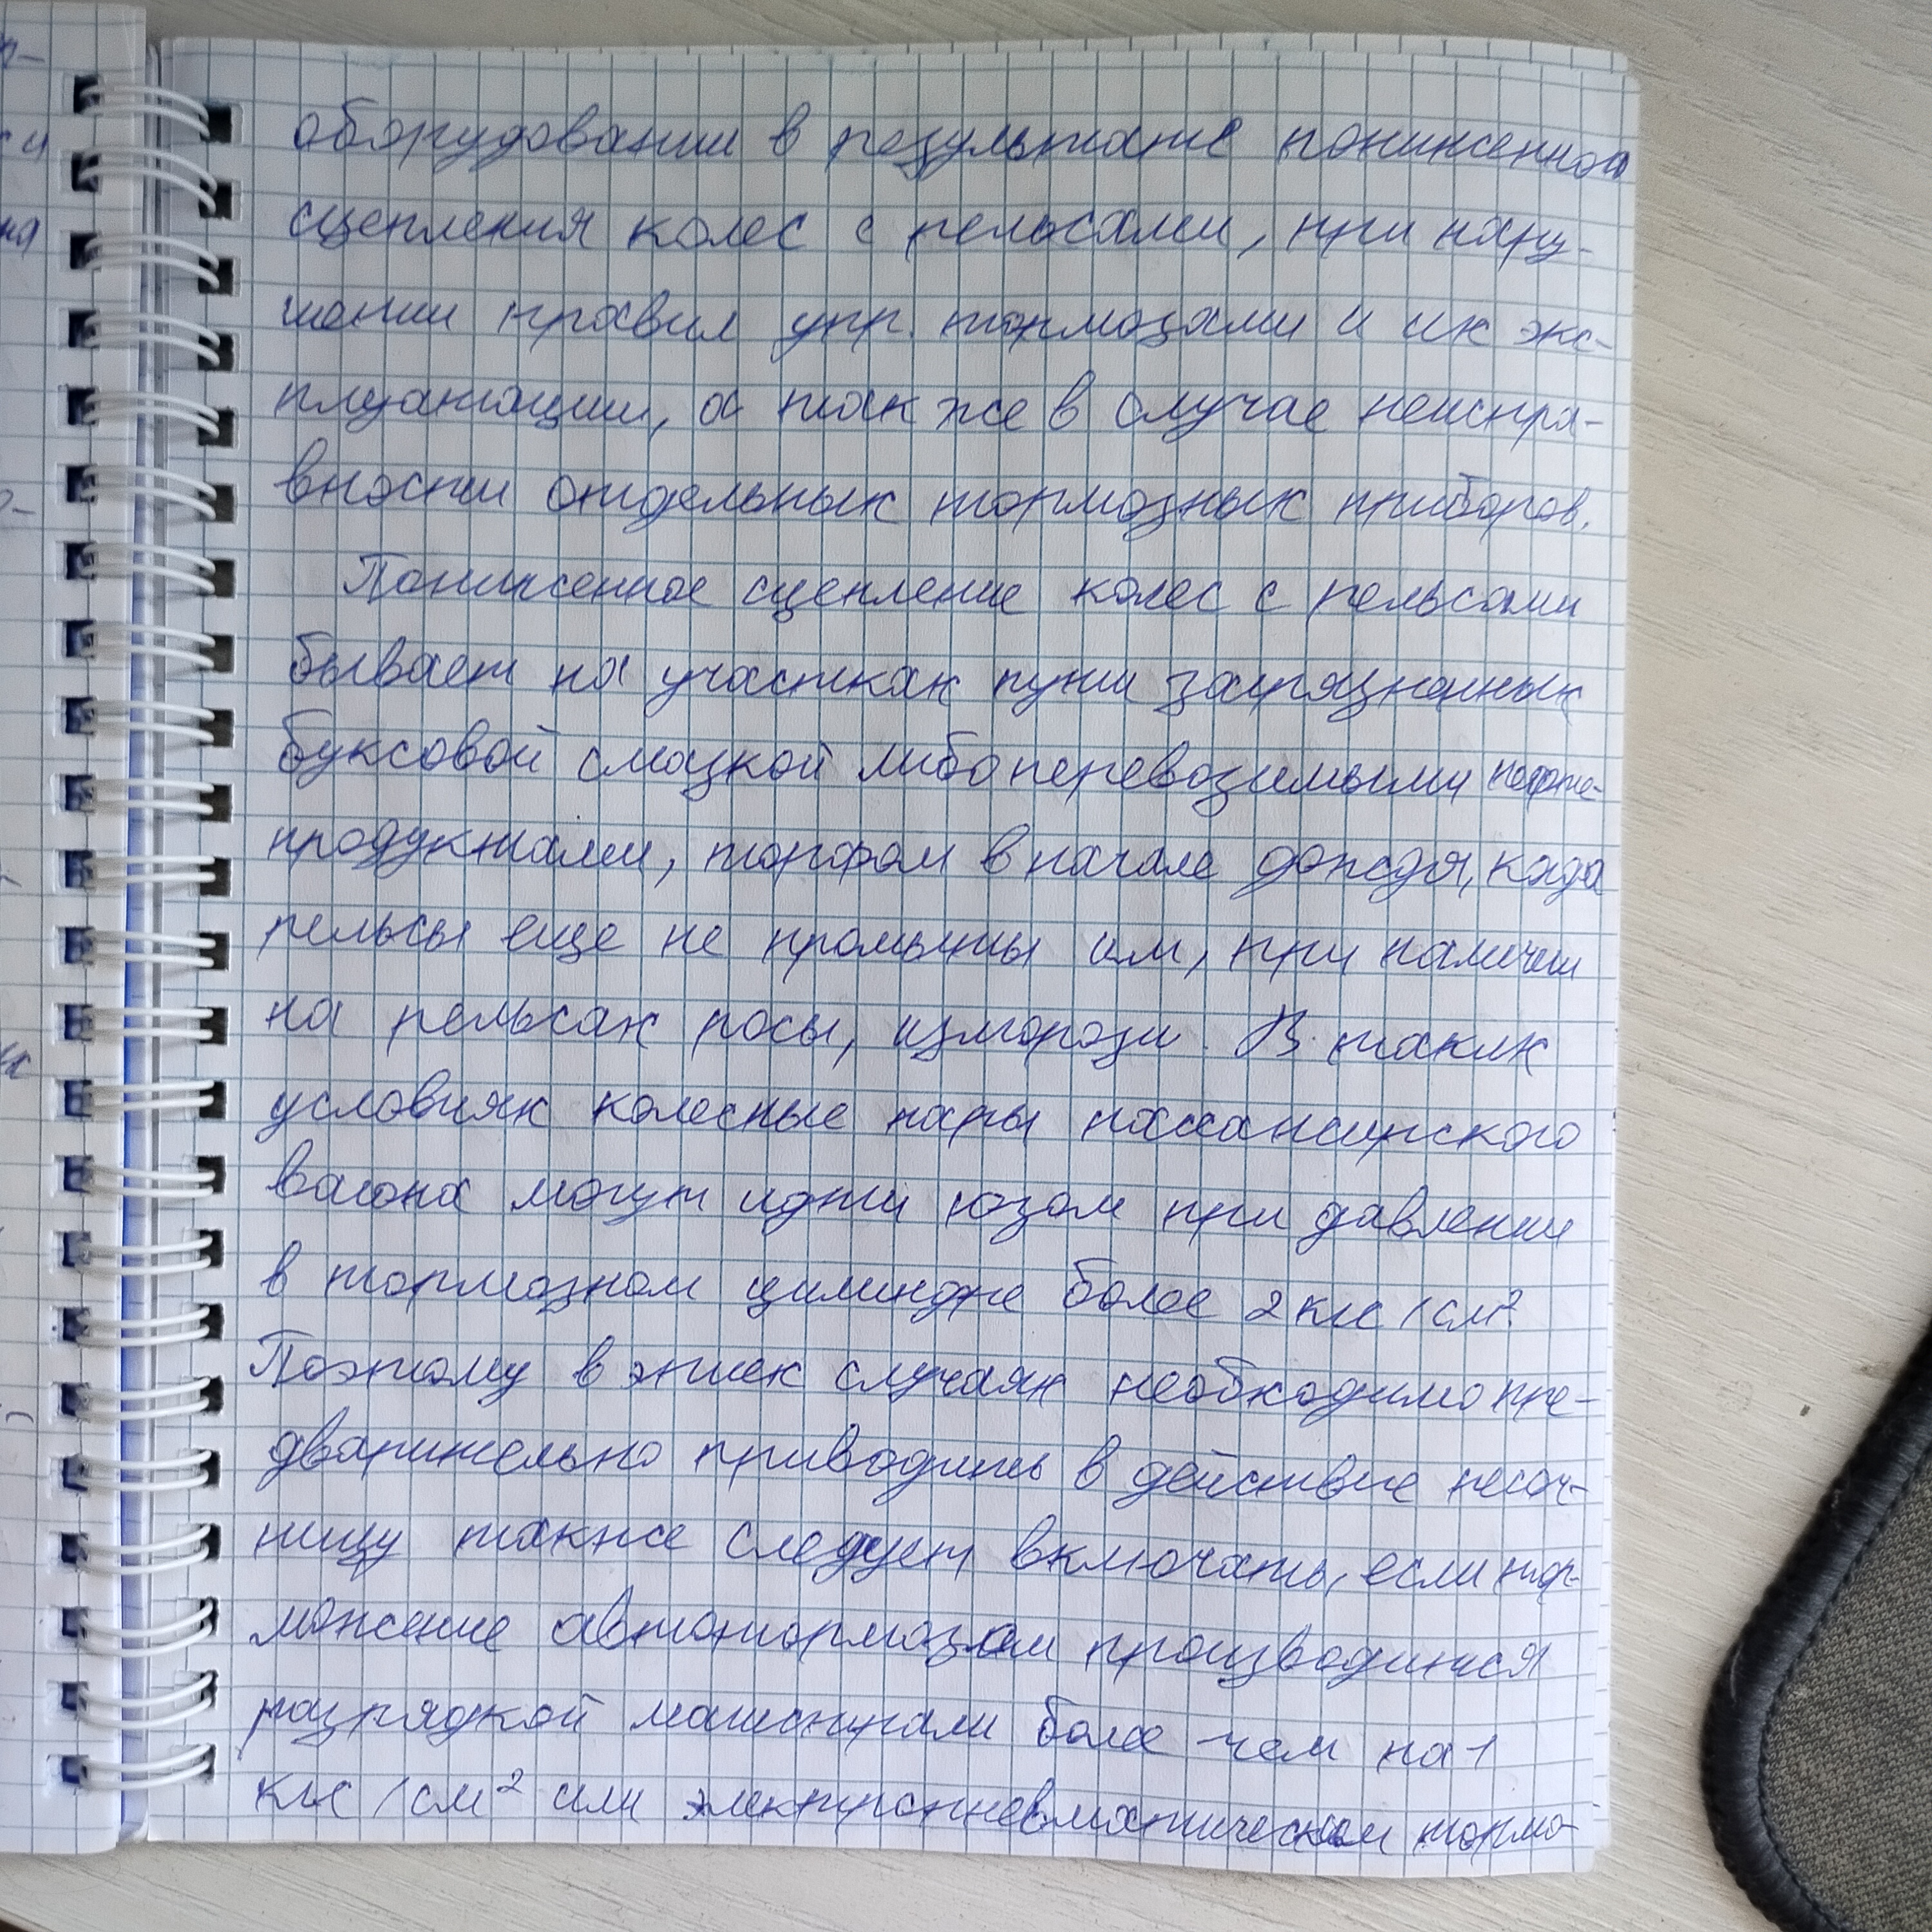 оборудовании в результате пониженного
сцепления колес с рельсами, при нару-
шении правил упр. тормозами и их экс-
плуатации, а так же в случае неиспра-
вности отдельных тормозных приборов.
Пониженное сцепление колес с рельсами
бывает на участках пути загрязненных
буксовой смазкой либо перевозимыми нефте-
продуктами, торфом в начале дождя, когда
рельсы еще не промыты им, при наличии
на рельсах росы, изморози. В таких
условиях колесные пары пассажирского
вагона могут идти юзом при давлении
в тормозном цилиндре более 2 кгс/см²
Поэтому в этих случаях необходимо пре-
дварительно приводить в действие песоч-
ницу также следует включать, если тор-
можение автотормозом производится
разрядкой магистрали более чем на 1
кгс/см² или электропневматическим тормо-